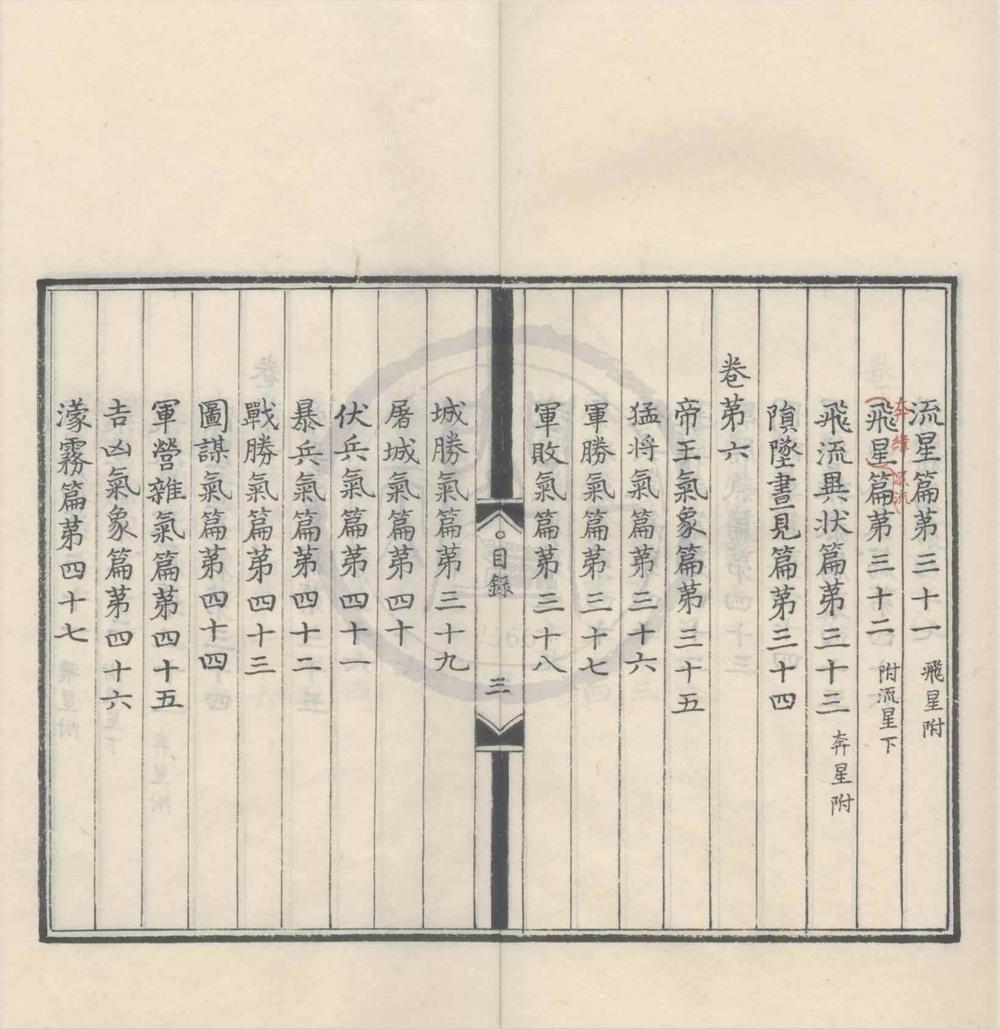 流星篇第三十一 飛星附
飛星篇第三十二 附流星下
飛流異状篇第三十三 奔星附
隕墜晝見篇第三十四
卷第六
帝王氣象篇第三十五
猛将氣篇第三十六
軍勝氣篇第三十七
軍敗氣篇第三十八
目錄
三
城勝氣篇第三十九
屠城氣篇第四十
伏兵氣篇第四十一
暴兵氣篇第四十二
戰勝氣篇第四十三
圖謀氣篇第四十四
軍營雜氣篇第四十五
吉凶氣象篇第四十六
濛霧篇第四十七